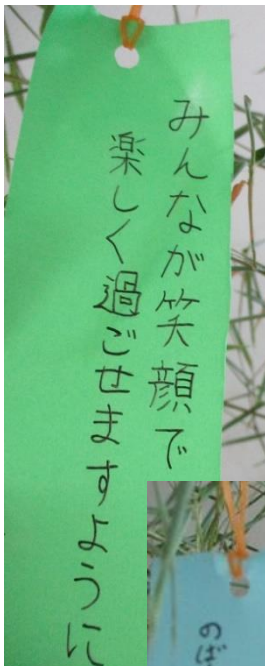 みんなが笑顔で
楽しく過ごせますように
のば